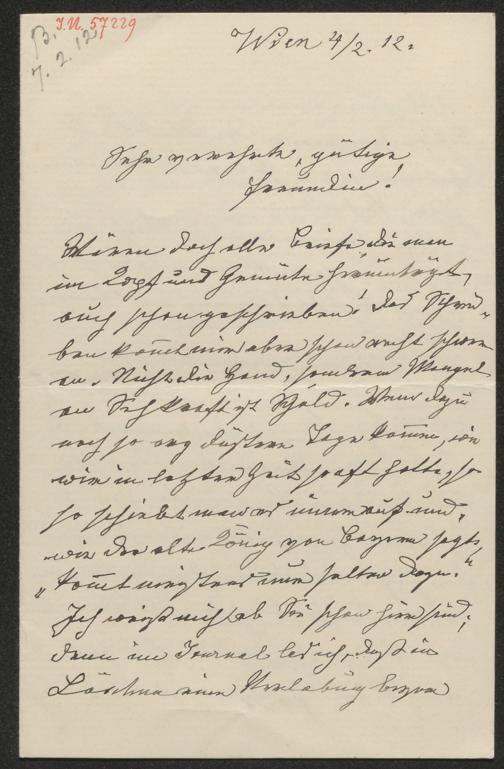 J.N. 57229
B.
7.2.12
Wien 4/2. 12.
Sehr verehrte, gütige
Freundin!
Wären doch alle Briefe die man
im Kopf und Gemüte herumträgt,
auch schon geschrieben! Das Schrei-
ben kom̄t mir aber schon recht schwer
an. Nicht die Hand, sondern Mangel
an Sehkraft ist Schuld. Wenn dazu
noch so arg düstere Tage kommen, wie
wir in letzter Zeit so oft hatte, so
so schiebt man es immer auf und,
wie der alte König von Bayern sagte,
„kom̄t meistens nur selten dazu."
Ich weiß nicht ob Sie schon hier sind;
denn im Journal las ich, daß in
eine Verlobung